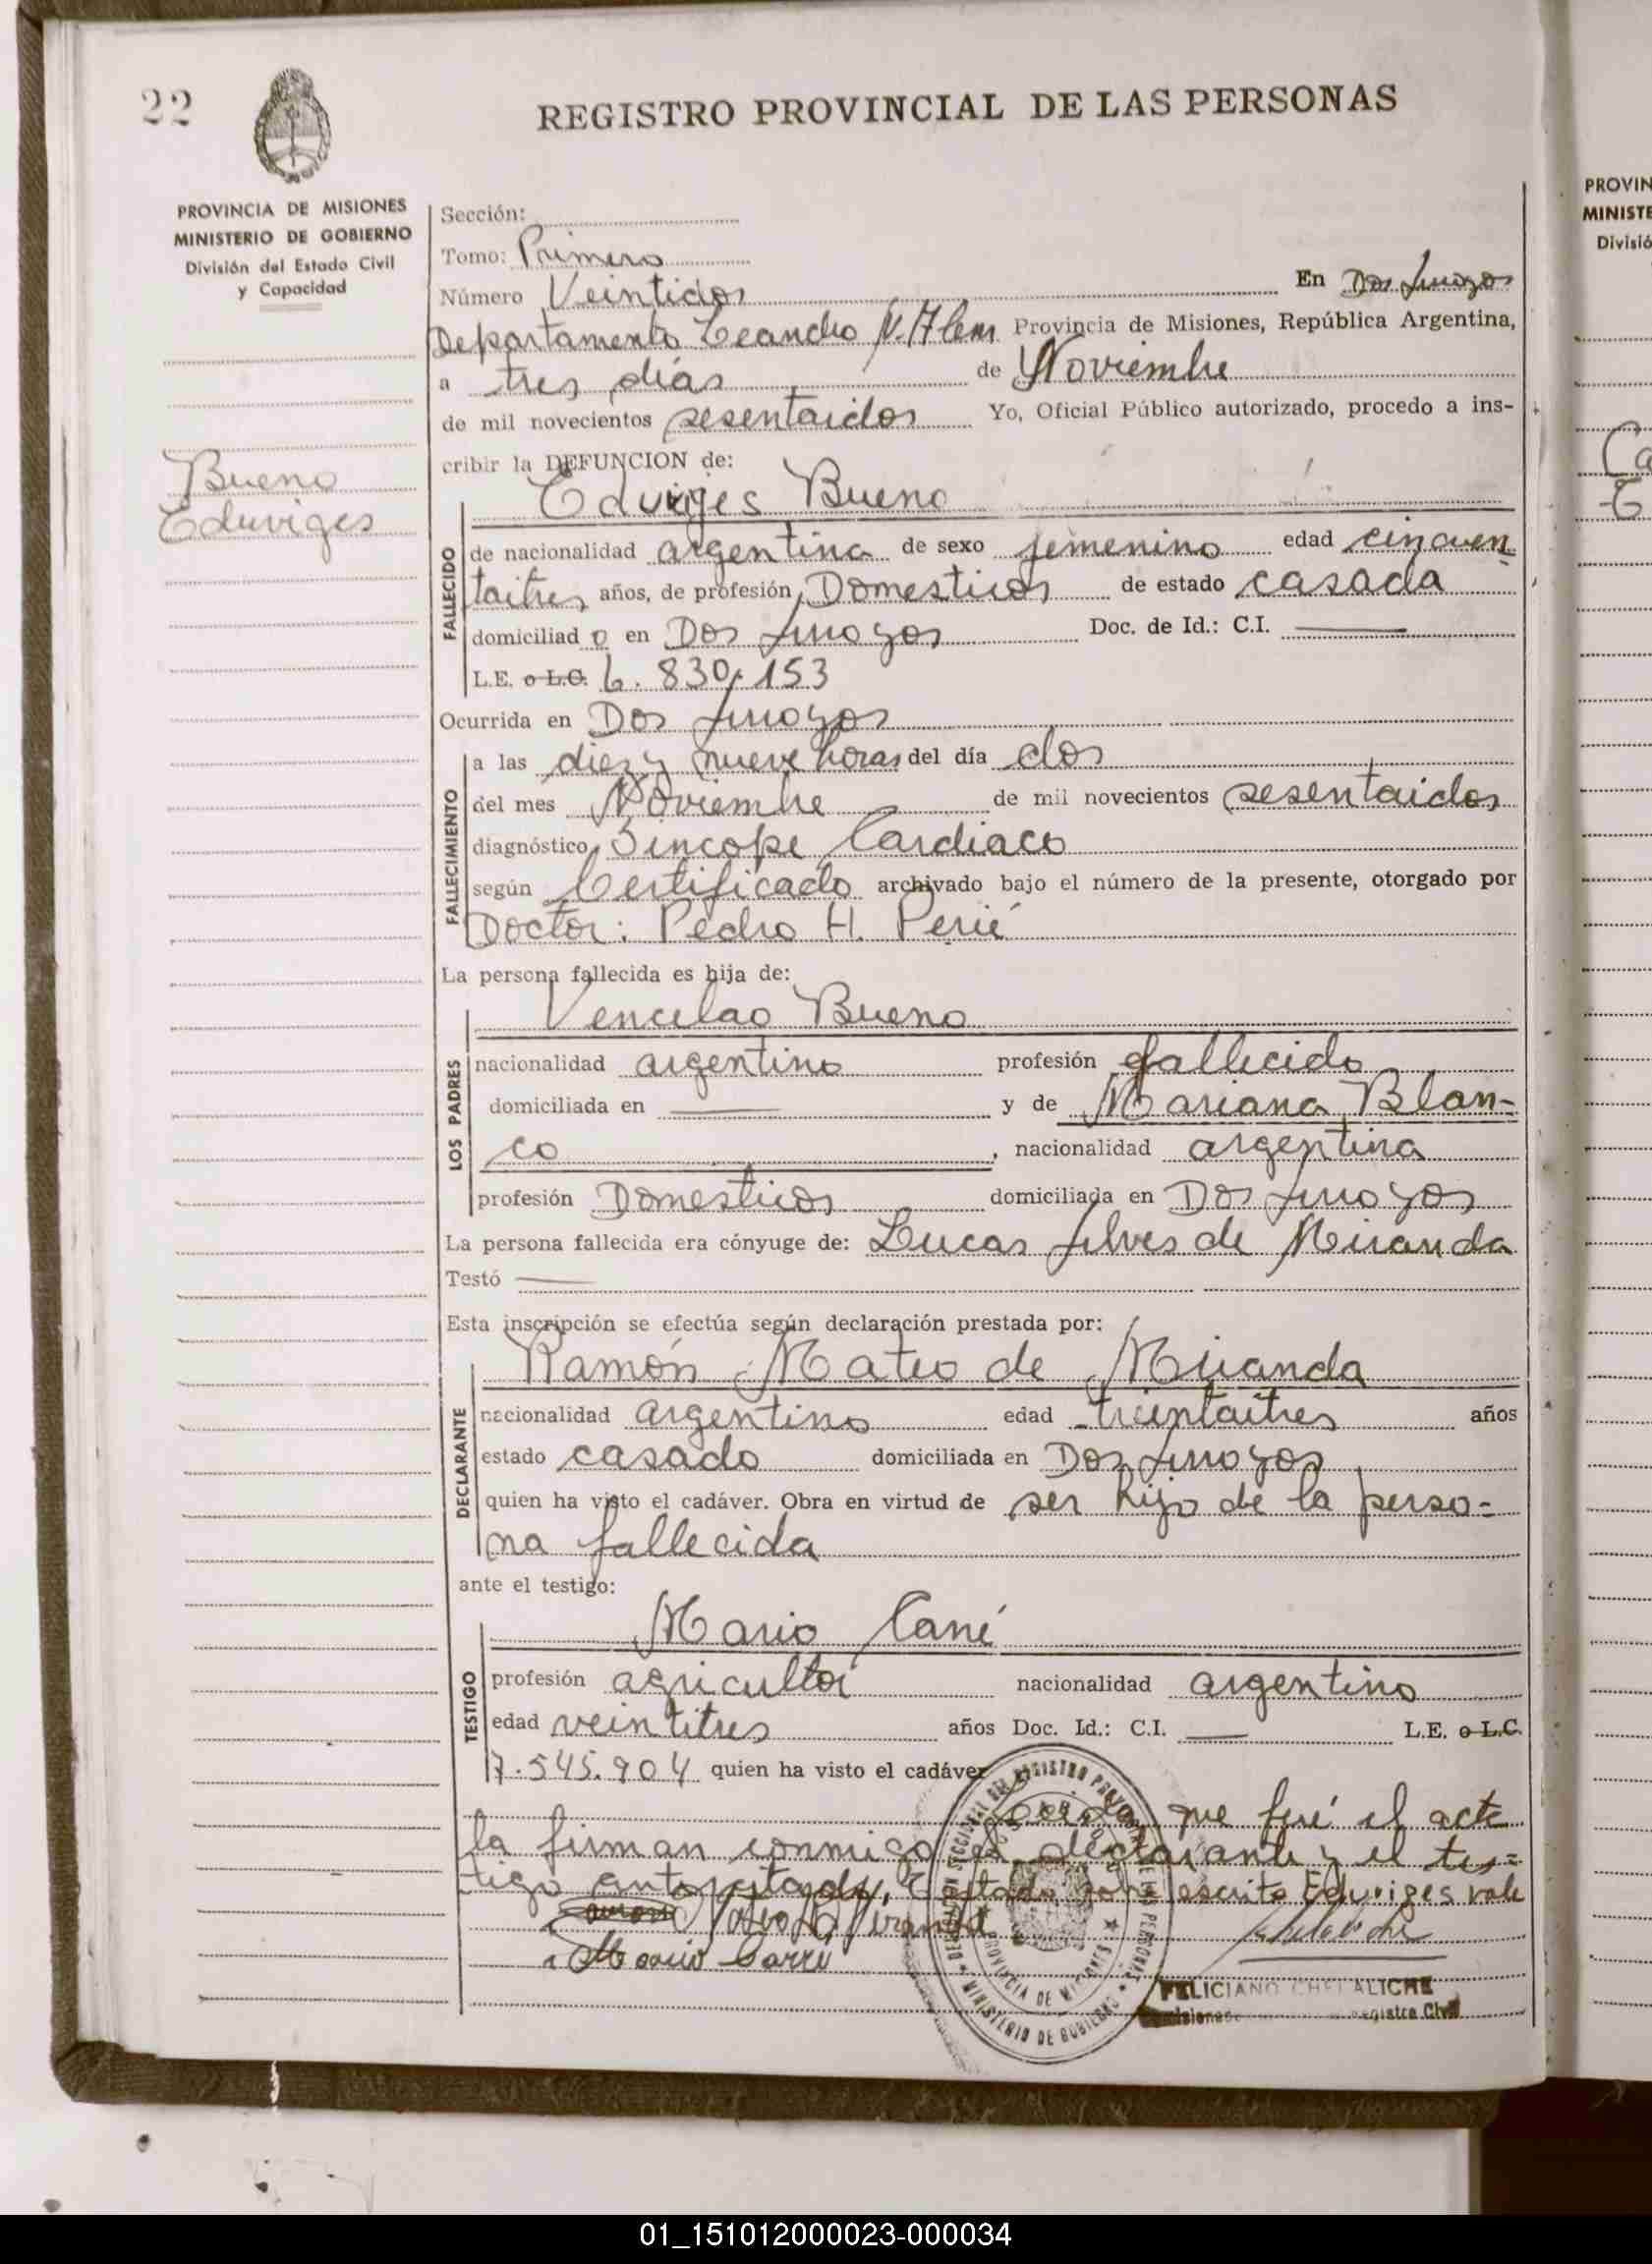 22
REGISTRO PROVINCIAL DE LAS PERSONAS
PROVINCIA DE MISIONES
MINISTERIO DE GOBIERNO
División del Estado Civil
y Capacidad
Bueno
Eduviges
Sección:
Tomo: Primero
Número Veintidos En Dos Arroyos
Departamento Leandro N. Alem Provincia de Misiones, República Argentina,
a tres días de Noviembre
de mil novecientos sesentaidos Yo, Oficial Público autorizado, procedo a ins-
cribir la DEFUNCION de:
Eduviges Bueno
FALLECIDO
de nacionalidad argentina de sexo femenino edad cincuen-
taitres años, de profesión Domesticos de estado casada
domiciliad o en Dos Arroyos Doc. de Id.: C.I.
L.E. o L.C. 6.830.153
Ocurrida en Dos Arroyos
FALLECIMIENTO
a las diez y nueve horas del día dos
del mes Noviembre de mil novecientos sesentaidos
diagnóstico Sincope Cardiaco
según Certificado archivado bajo el número de la presente, otorgado por
Doctor: Pedro H. Perié
La persona fallecida es hija de:
Vencelao Bueno
LOS PADRES
nacionalidad argentino profesión fallecido
domiciliada en y de Mariana Blan-
co, nacionalidad argentina
profesión Domesticos domiciliada en Dos Arroyos
La persona fallecida era cónyuge de: Lucas Alves de Miranda
Testó
Esta inscripción se efectúa según declaración prestada por:
Ramón Mateo de Miranda
DECLARANTE
nacionalidad argentino edad treintaitres años
estado casado domiciliada en Dos Arroyos
quien ha visto el cadáver. Obra en virtud de ser hijo de la perso=
na fallecida
ante el testigo:
Mario Carré
TESTIGO
profesión agricultor nacionalidad argentino
edad veintitres años Doc. Id.: C.I. L.E. o L.C.
7.545.904 quien ha visto el cadáver
Leida que fué el acta
la firman conmigo el declarante y el tes=
tigo sobre escrito Eduviges vale
Mario Carré
MINISTERIO DE GOBIERNO
PROVINCIA DE MISIONES
FELICIANO CHELALICHE
Registro Civil
PROVIN
MINISTE
Divisió
01_151012000023-000034